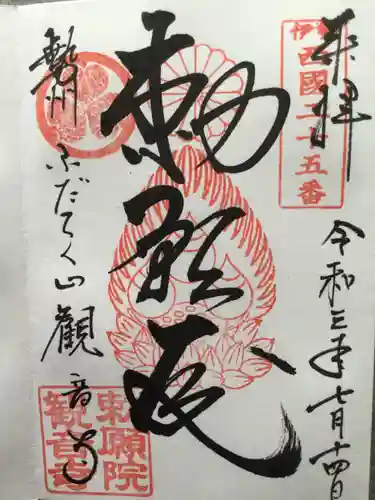 奉拝
伊勢
西國二十五番
令和三年七月十四日
勅願院
勢州
ふだらく山觀音寺
勅願院
観音寺